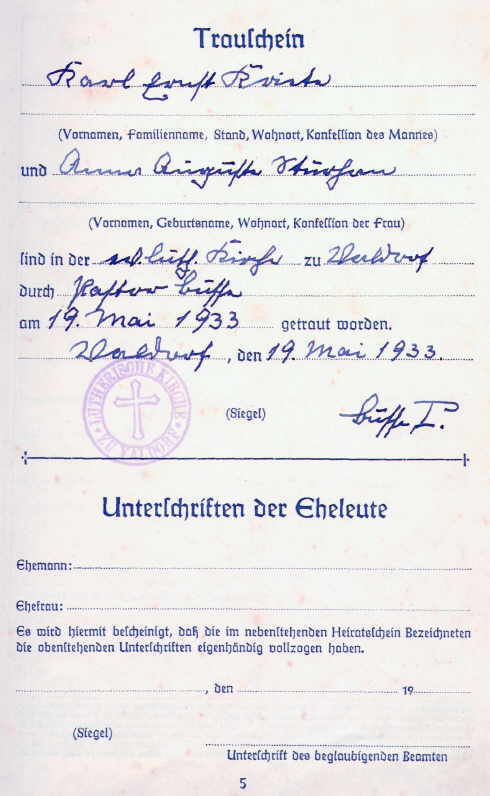 Trauschein
Karl Ernst
(Vornamen, Familienname, Stand, Wohnort, Konfession des Mannes)
und Anna Auguste
(Vornamen, Geburtsname, Wohnort, Konfession der Frau)
sind in der ev. luth. Kirche zu Valdorf
durch Pastor Busse
am 19. Mai 1933 getraut worden.
Valdorf, den 19. Mai 1933.
LUTHERISCHE KIRCHE
ZU VALDORF
(Siegel) Busse I.
Unterschriften der Eheleute
Ehemann:
Ehefrau:
Es wird hiermit bescheinigt, daß die im nebenstehenden Heiratsschein Bezeichneten
die obenstehenden Unterschriften eigenhändig vollzogen haben.
, den 19
(Siegel)
Unterschrift des beglaubigenden Beamten
5